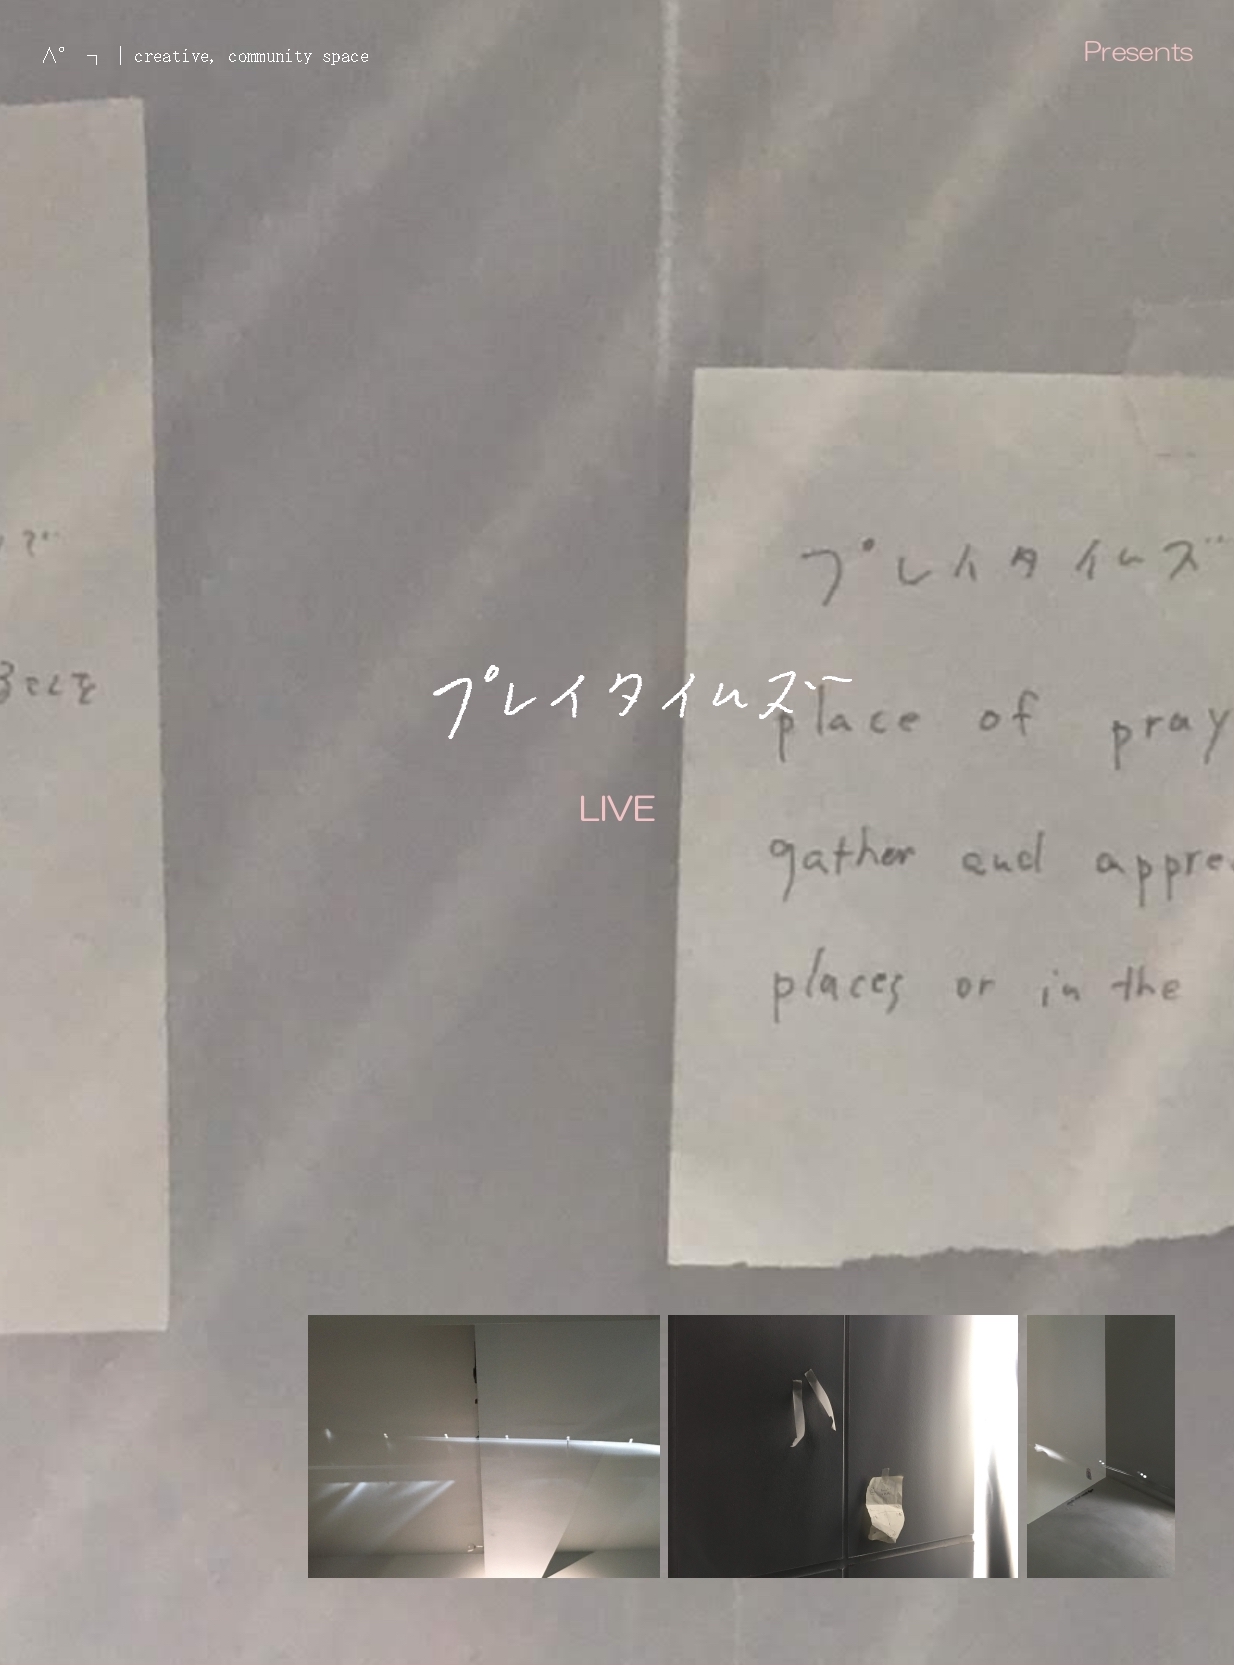 creative, community space
Presents
プレイタイムズ
place of pray
gather and appre
places or in the
プレイタイムズ
LIVE